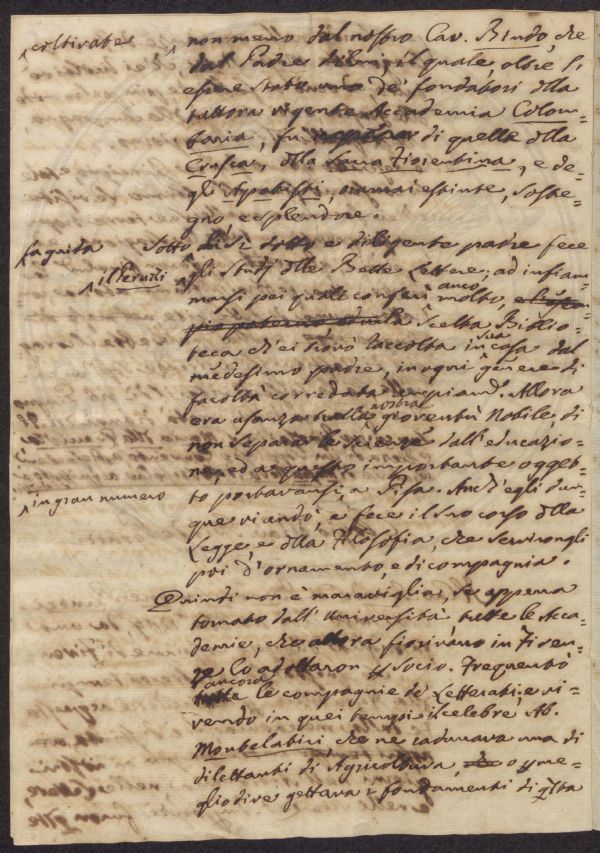 coltivate
non meno dal nostro Cav. Bindo, che
dal Padre di lui, il quale, oltre l'
essere stato uno de' fondatori della
tuttora vigente Accademia Colom-
baria, fu di quelle della
Crusca, della Sacra Fiorentina, e de-
gli Apatisti, oramai estinte, soste-
gno, e splendore.
la guida
Sotto di sì dotto e diligente padre fece
il Peruzzi
gli studj delle Belle Lettere; ad infiam-
marsi pei quali conferì anco molto,
la scelta Biblio-
teca ch'ei trovò raccolta in sua casa dal
medesimo padre, in ogni genere di
facoltà corredata ampiam. Allora
era usanza nella nostra gioventù Nobile di
non separar le scienze dall'educazio-
ne, ed a questo importante ogget-
to portavansi, a Pisa. Anch'egli dun-
in gran numero
que vi andò, e fece il suo corso della
Legge, e della Filosofia, che servirongli
poi d'ornamento, e di compagnia.
Quindi non è maraviglia, se appena
tornato dall'Università tutte le Acca-
demie, che allora fiorivano in Firen-
ze lo adottaron p socio. Frequentò
ancora le compagnie de Letterati; e vi-
vendo in quei tempi il celebre Ab.
Montelatici, che ne radunava una di
dilettanti di Agricoltura, o p me-
glio dire gettava i fondamenti di qlta